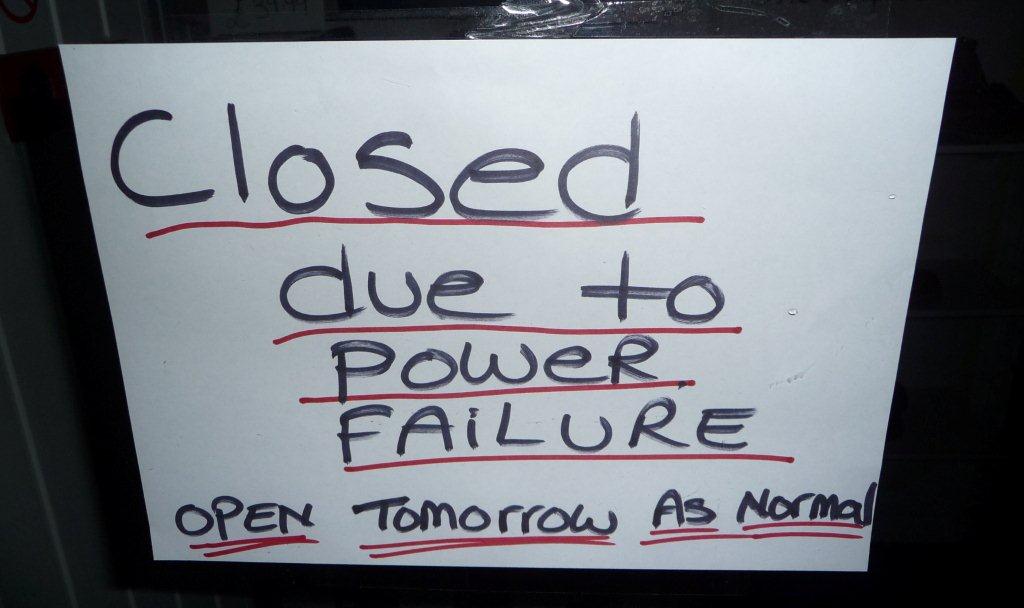 Closed
due to
POWER
FAILURE
OPEN Tomorrow As Normal